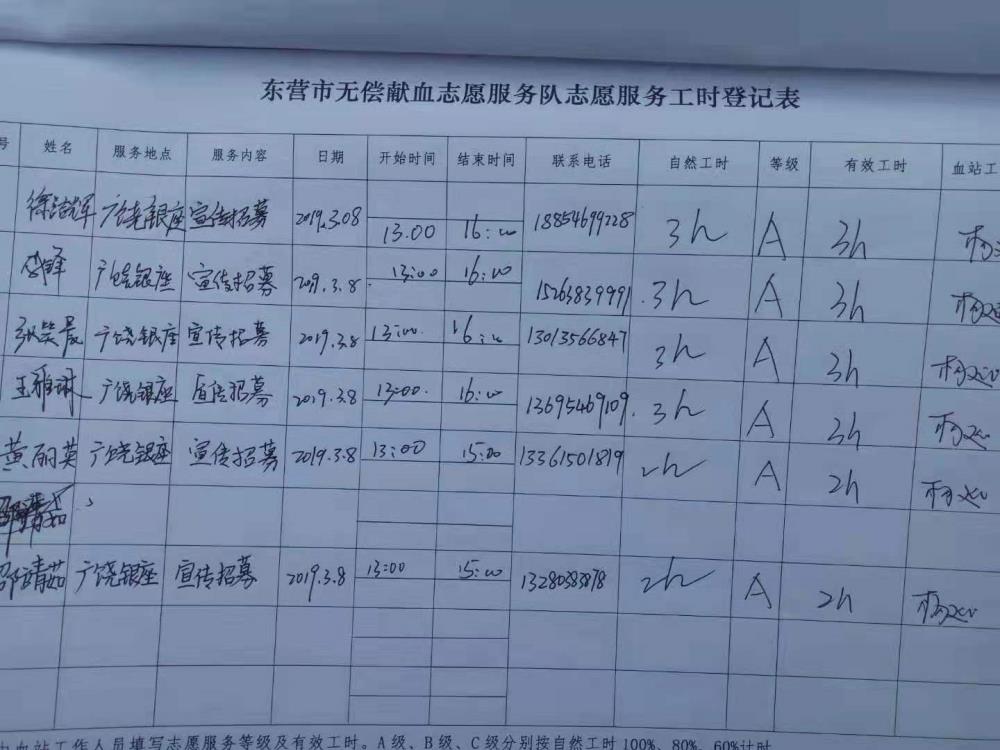 东营市无偿献血志愿服务队志愿服务工时登记表
号 姓名 服务地点 服务内容 日期 开始时间 结束时间 联系电话 自然工时 等级 有效工时 血站工
广饶银座 宣传招募 2019.3.08 13.00 16:00 18854699228 3h A 3h
广饶银座 宣传招募 2019.3.8. 13:00 16:00 15263839991 3h A 3h
广饶银座 宣传招募 2019.3.8 13:00. 16:00 13013566847 3h A 3h
王雅琳 广饶银座 宣传招募 2019.3.8 13:00. 16:00 13695469109. 3h A 3h
黄丽英 广饶银座 宣传招募 2019.3.8 13:00 15:00 13361501819 2h A 2h
邵靖茹 广饶银座 宣传招募 2019.3.8 13:00 15:00 2h A 2h
血站工作人员填写志愿服务等级及有效工时。A级、B级、C级分别按自然工时100%、80%、60%计时